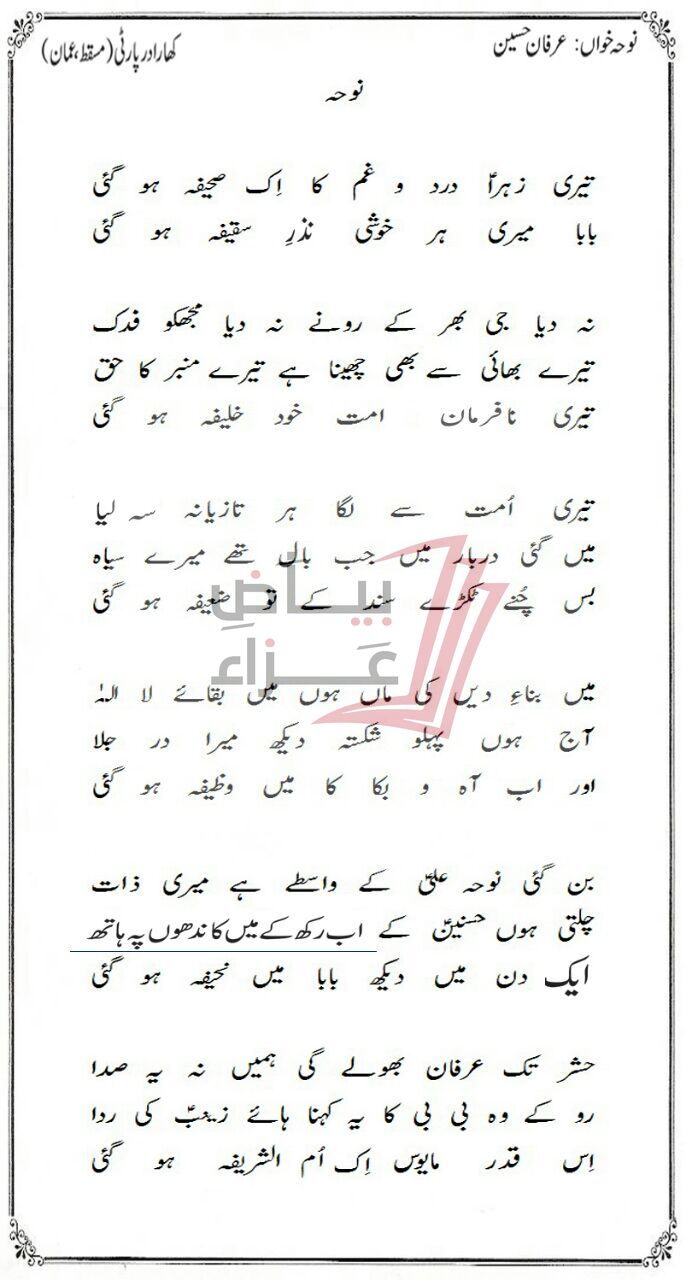 نوحہ خواں: عرفان حسین
کھارادر پارٹی (مسقط، عمان)
نوحہ
تیری زہراؑ درد و غم کا اِک صحیفہ ہو گئی
بابا میری ہر خوشی نذرِ سقیفہ ہو گئی
نہ دیا جی بھر کے رونے نہ دیا مجھکو فدک
تیرے بھائی سے بھی چھینا ہے تیرے منبر کا حق
تیری نافرمان امت خود خلیفہ ہو گئی
تیری اُمت سے لگا ہر تازیانہ سہ لیا
میں گئی دربار میں جب بال تھے میرے سیاہ
بس چُنے ٹکڑے سند کے تو ضعیفہ ہو گئی
میں بناءِ دیں کی ماں ہوں میں بقائے لا الہٰ
آج ہوں پہلو شکستہ دیکھ میرا در جلا
اور اب آہ و بکا کا میں وظیفہ ہو گئی
بن گئی نوحہ علیؑ کے واسطے ہے میری ذات
چلتی ہوں حسنینؑ کے اب رکھ کے میں کاندھوں پہ ہاتھ
ایک دن میں دیکھ بابا میں نحیفہ ہو گئی
حشر تک عرفان بھولے گی ہمیں نہ یہ صدا
رو کے وہ بی بی کا یہ کہنا ہائے زینبؑ کی ردا
اِس قدر مایوس اِک اُم الشریفہ ہو گئی
بیاضِ
عَزاء